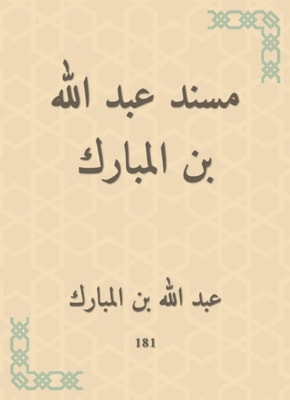 مسند عبد الله
بن المبارك
عبد الله بن المبارك
181